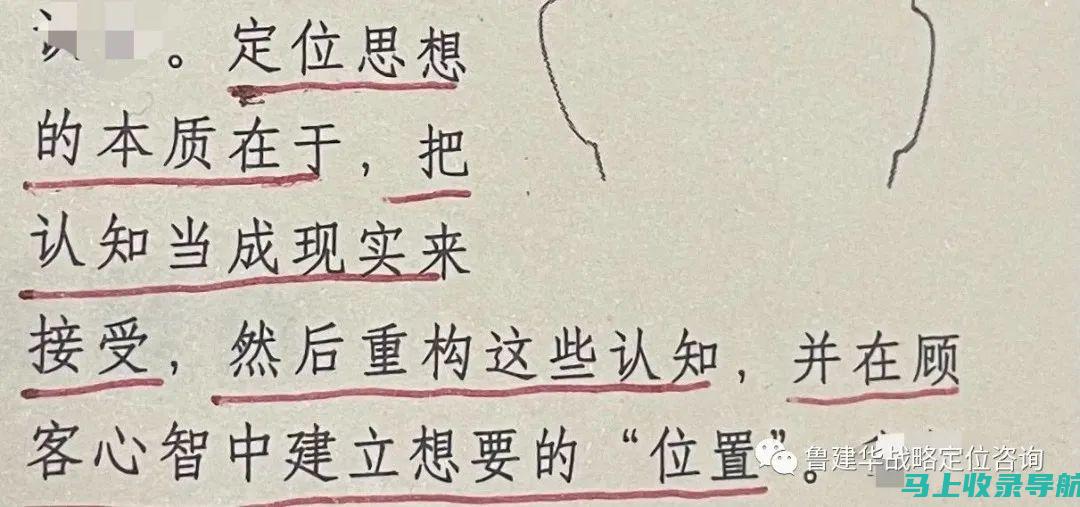 。定位思想
的本质在于，把
认知当成现实来
接受，然后重构这些认知，并在顾
客心智中建立想要的“位置”。
鲁建华战略定位咨询
马上收录导航